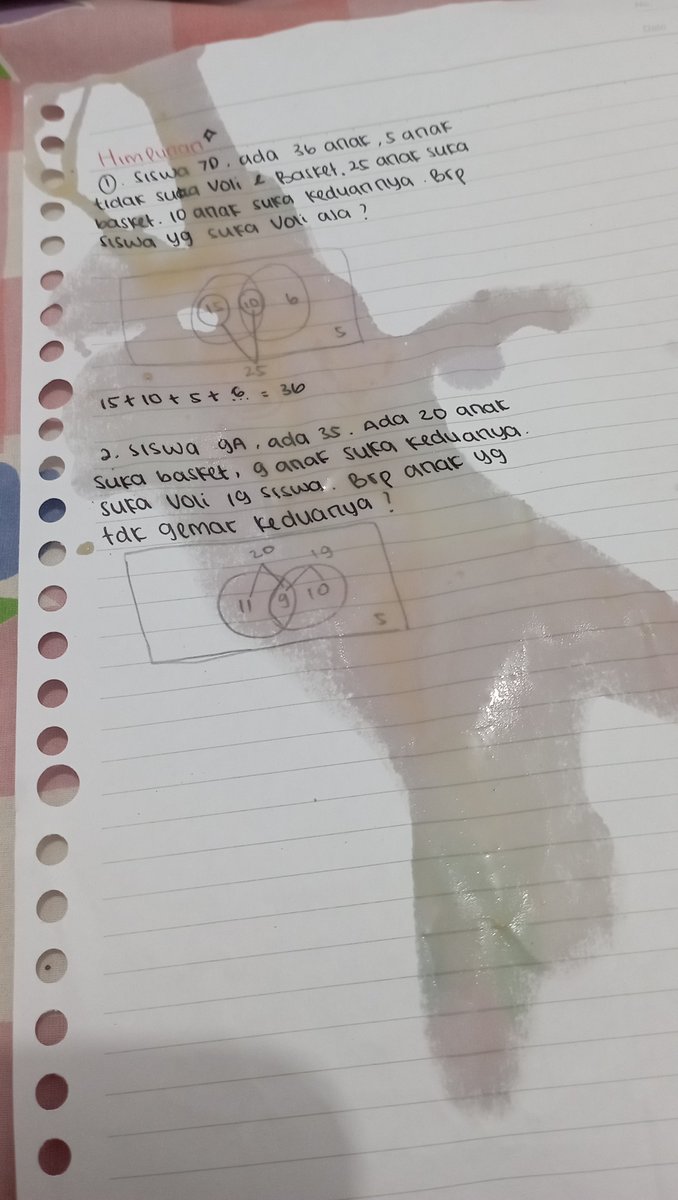 Himpunan
①. Siswa 7D. ada 36 anak, 5 anak
tidak suka voli & Basket. 25 anak suka
basket. 10 anak suka keduannya. Brp
siswa yg suka voli aja?
15 10 6
5
25
15 + 10 + 5 + 6 = 36
2. Siswa 9A, ada 35. Ada 20 anak
suka basket, 9 anak suka keduanya.
suka voli 19 siswa. Brp anak yg
tdk gemar keduanya?
20 19
11 9 10
5